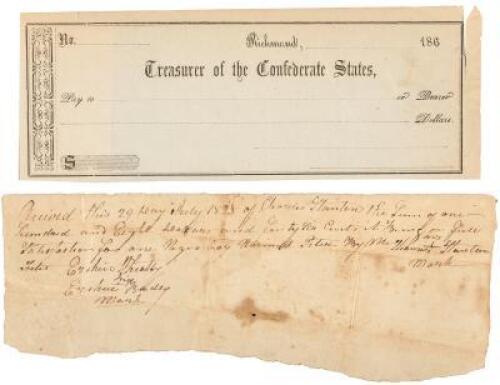 No. Richmond, 186
Treasurer of the Confederate States,
Pay to or Bearer
Dollars
$
Received this 29 day July 18 of Charles Stanton the Sum of one
hundred and Eight dollars and Cents it being in full
Satisfaction for one Negro boy Named Peter by Me Stanton
Teste Erskine his Mark
Erskine
Mark